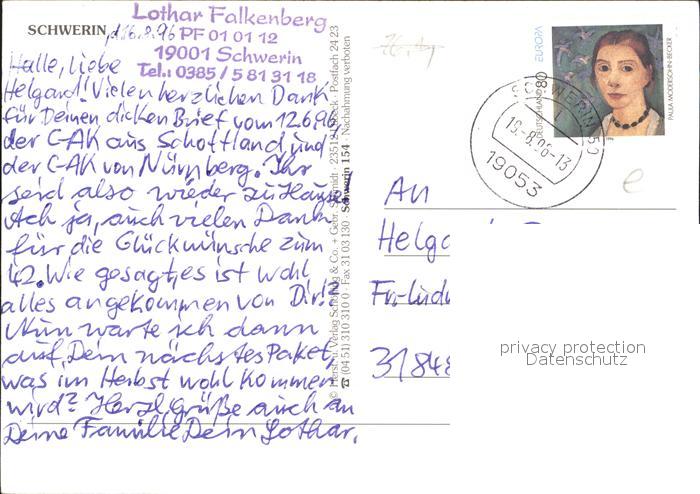 SCHWERIN, d. 16.8.96
Lothar Falkenberg
PF 01 01 12
19001 Schwerin
Tel.: 0385 / 5 81 31 18
Halle, liebe
Helgard! Vielen herzlichen Dank
für Deinen dicken Brief vom 12.6.96,
der C-AK aus Schottland und
der C-AK von Nürnberg. Ihr
seid also wieder zu Hause!
Ach ja, auch vielen Dank
für die Glückwünsche zum
42. Wie gesagt, es ist wohl
alles angekommen von Dir!?
Nun warte ich dann
auf Dein nächstes Paket,
was im Herbst wohl kommen
wird? Herzl. Grüße auch an
Deine Familie Dein Lothar.
Verlag Schöning & Co. + Gebr. Schmidt · 23519 Lübeck · Postfach 24 23
☎ (04 51) 310 310 0 · Fax 31 03 130 · Schwerin 154 · Nachahmung verboten
DEUTSCHLAND 80
EUROPA
PAULA MODERSOHN-BECKER
SCHWERIN 50
19053
-8.96-13
e
An
Helga
Fr.-Ludw
31848
privacy protection
Datenschutz